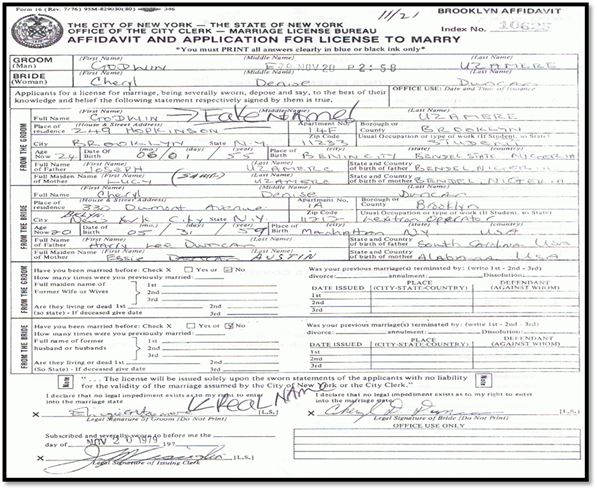 Form 16 (Rev. 7/76) 346
11/21 BROOKLYN AFFIDAVIT
THE CITY OF NEW YORK — THE STATE OF NEW YORK
OFFICE OF THE CITY CLERK — MARRIAGE LICENSE BUREAU Index No.
AFFIDAVIT AND APPLICATION FOR LICENSE TO MARRY
*You must PRINT all answers clearly in blue or black ink only*
GROOM (Man) (First Name) (Middle Name) (Last Name)
GODWIN NOV 20 P 2:58 UZAMERE
BRIDE (Woman) (First Name) (Middle Name) (Last Name)
Cheryl Denise Duncan
Applicants for a license for marriage, being severally sworn, depose and say, to the best of their OFFICE USE: Date and Time of Issuance
knowledge and belief the following statement respectively signed by them is true,
FROM THE GROOM
(First Name) (Middle Name) (Last Name)
Full Name GODWIN Fake Name UZAMERE
Place of residence (House & Street Address) Apartment No. Borough or County
249 HOPKINSON 14F BROOKLYN
City State Zip Code Usual Occupation or type of work (If Student, so State)
BROOKLYN N.Y STUDENT
Age Now 24 Date of Birth (mo) (day) (yr) Place of Birth (city) (state) (country)
06 01 55 BENIN CITY BENDEL STATE NIGERIA
Full Name of Father (First Name) (Last Name) State and Country of birth of father
JOSEPH UZAMERE
Full Maiden Name of Mother (First Name) (Last Name) State and Country of birth of mother
LUCY UZAMERE
FROM THE BRIDE
(First Name) (Middle Name) (Last Name)
Full Name Cheryl Denise Duncan
Place of residence (House & Street Address) Apartment No. Borough or County
330 Dumont Avenue 1A Brooklyn
City State Zip Code Usual Occupation or type of work (If Student, so State)
New York City N.Y. 11212 Operator
Age Now 20 Date of Birth (mo) (day) (yr) Place of Birth (city) (state) (country)
05 31 59 Manhattan NY USA
Full Name of Father (First Name) (Last Name) State and Country of birth of father
Lee Duncan South Carolina USA
Full Maiden Name of Mother (First Name) (Last Name) State and Country of birth of mother
Essie AUSTIN Alabama USA
FROM THE GROOM
Have you been married before: Check X Yes or No
How many times were you previously married:
Full maiden name of Former Wife or Wives 1st
2nd
3rd
Are they living or dead 1st 2nd 3rd
(so State) - If deceased give date
Was your previous marriage(s) terminated by: (write 1st - 2nd - 3rd)
divorce: annulment: Dissolution:
DATE ISSUED PLACE (CITY-STATE-COUNTRY) DEFENDANT (AGAINST WHOM)
1st
2nd
3rd
FROM THE BRIDE
Have you been married before: Check X Yes or No
How many times were you previously married:
Full name of former husband or husbands 1st
2nd
3rd
Are they living or dead 1st 2nd 3rd
(So State) - If deceased give date
Was your previous marriage(s) terminated by: (write 1st - 2nd - 3rd)
divorce: annulment: dissolution:
DATE ISSUED PLACE (CITY-STATE-COUNTRY) DEFENDANT (AGAINST WHOM)
1st
2nd
3rd
"... The license will be issued solely upon the sworn statements of the applicants with no liability
for the validity of the marriage assumed by the City of New York or the City Clerk."
I declare that no legal impediment exists as to my right to enter into the marriage state
Real Name
X [L.S.]
Legal Signature of Groom (Do Not Print)
I declare that no legal impediment exists as to my right to enter into the marriage state
X Cheryl D. Duncan [L.S.]
Legal Signature of Bride (Do Not Print)
Subscribed and severally sworn to before me the
day of NOV 20 1979
X [L.S.]
Legal Signature of Issuing Clerk
OFFICE USE ONLY